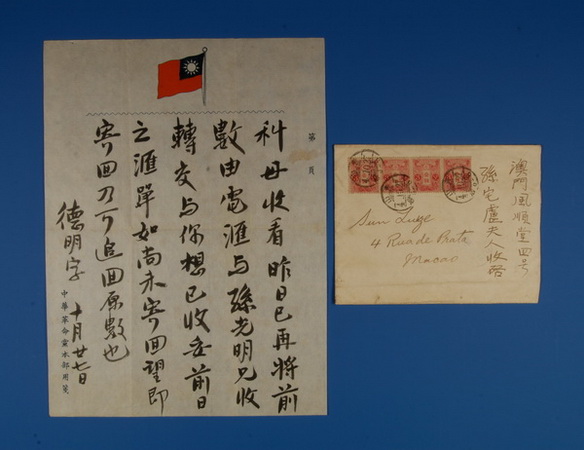 第 頁
科母收看昨日已再將前
數由電滙与孫光明兄收
轉交与你想已收妥前日
之滙單如尚未寄囬望即
寄囬乃可追囬原數也
德明字 十月廿七日
中華革命黨本部用箋
澳門風順堂四号
孫宅盧夫人收啓
Sun Luge
4 Rua de Prata
Macao